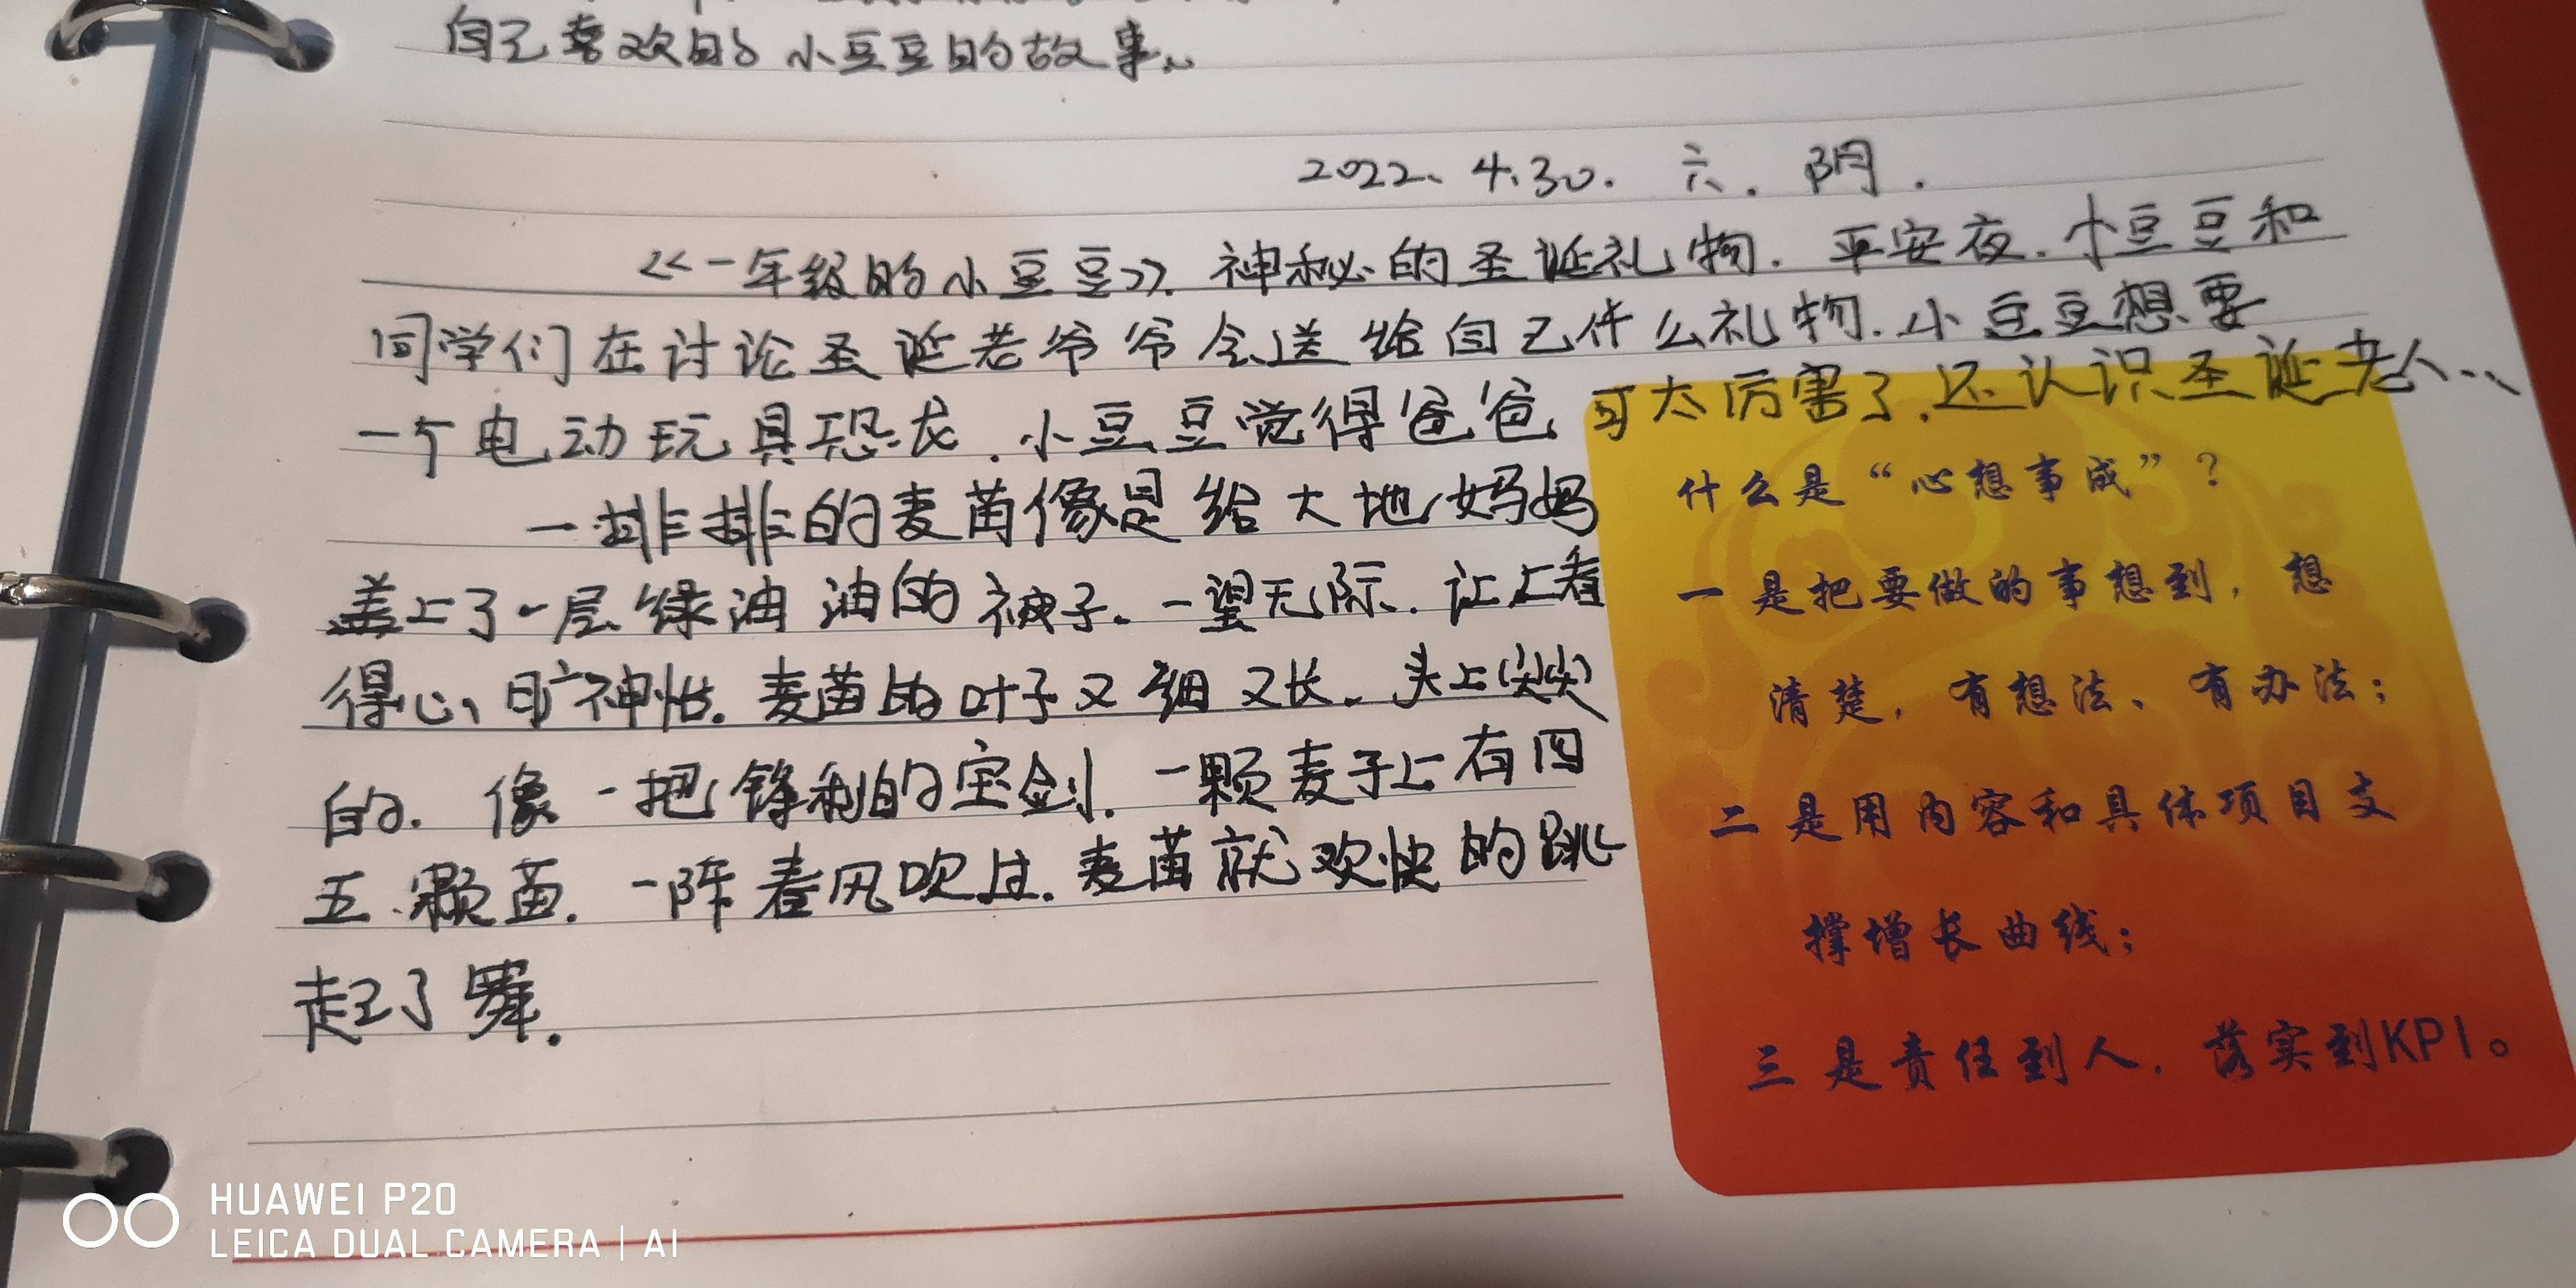 自己喜欢的小豆豆的故事。
2022、4.30. 六. 阴.
《一年级的小豆豆》. 神秘的圣诞礼物. 平安夜. 小豆豆和
同学们在讨论圣诞老爷爷会送给自己什么礼物. 小豆豆想要
一个电动玩具恐龙. 小豆豆觉得爸爸可太厉害了. 还认识圣诞老人...
一排排的麦苗像是给大地妈妈
盖上了一层绿油油的被子. 一望无际. 让人看
得心旷神怡. 麦苗的叶子又细又长. 头上尖尖
的. 像一把锋利的宝剑. 一颗麦子上有四
五颗苗. 一阵春风吹过. 麦苗就欢快的跳
起了舞.
什么是“心想事成”？
一是把要做的事想到，想
清楚，有想法、有办法；
二是用内容和具体项目支
撑增长曲线；
三是责任到人，落实到KPI。
HUAWEI P20
LEICA DUAL CAMERA | AI